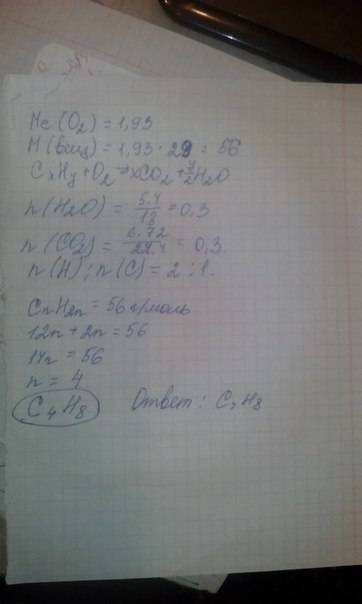 Mc(O₂) = 1,93
M(вещ) = 1,93 · 29 = 56
CxHy + O₂ → xCO₂ + y/2 H₂O
n(H₂O) = 5.4/18 = 0,3
n(CO₂) = 6.72/22.4 = 0,3.
n(H) : n(C) = 2 : 1.
CnH2n = 56 г/моль
12n + 2n = 56
14n = 56
n = 4
C₄H₈ Ответ : C₄H₈